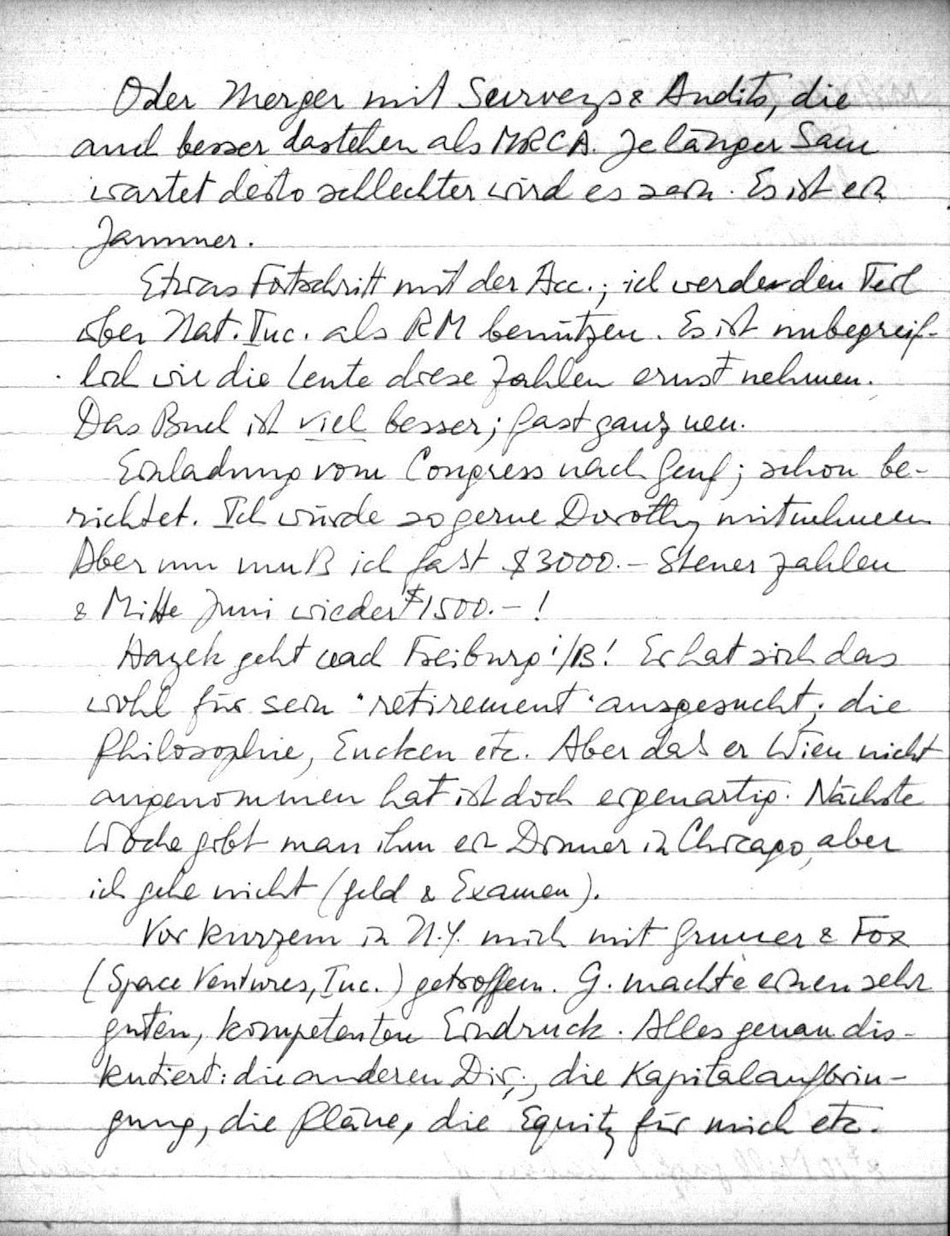 Oder Merger mit Surveys & Audits, die
auch besser dastehen als MRCA. Je länger Sam
wartet desto schlechter wird es sein. Es ist ein
Jammer.
Etwas Fortschritt mit der Acc.; ich werde den Teil
über Nat. Inc. als RM benützen. Es ist unbegreif-
lich wie die Leute diese Zahlen ernst nehmen.
Das Buch ist viel besser; fast ganz neu.
Einladung vom Congress nach Genf; schon be-
richtet. Ich würde so gerne Dorothy mitnehmen
Aber nun muß ich fast $3000.– Steuer zahlen
& Mitte Juni wieder $1500.– !
Hayek geht nach Freiburg i/B! Er hat sich das
wohl für sein "retirement" ausgesucht; die
Philosophie, Eucken etc. Aber daß er Wien nicht
angenommen hat ist doch eigenartig. Nächste
Woche gibt man ihm ein Dinner in Chicago, aber
ich gehe nicht (Geld & Examen).
Vor kurzem in N.Y. mich mit Gruner & Fox
(Space Ventures, Inc.) getroffen. G. machte einen sehr
guten, kompetenten Eindruck. Alles genau dis-
kutiert: die anderen Dir., die Kapitalaufbrin-
gung, die Pläne, die Equity für mich etc.